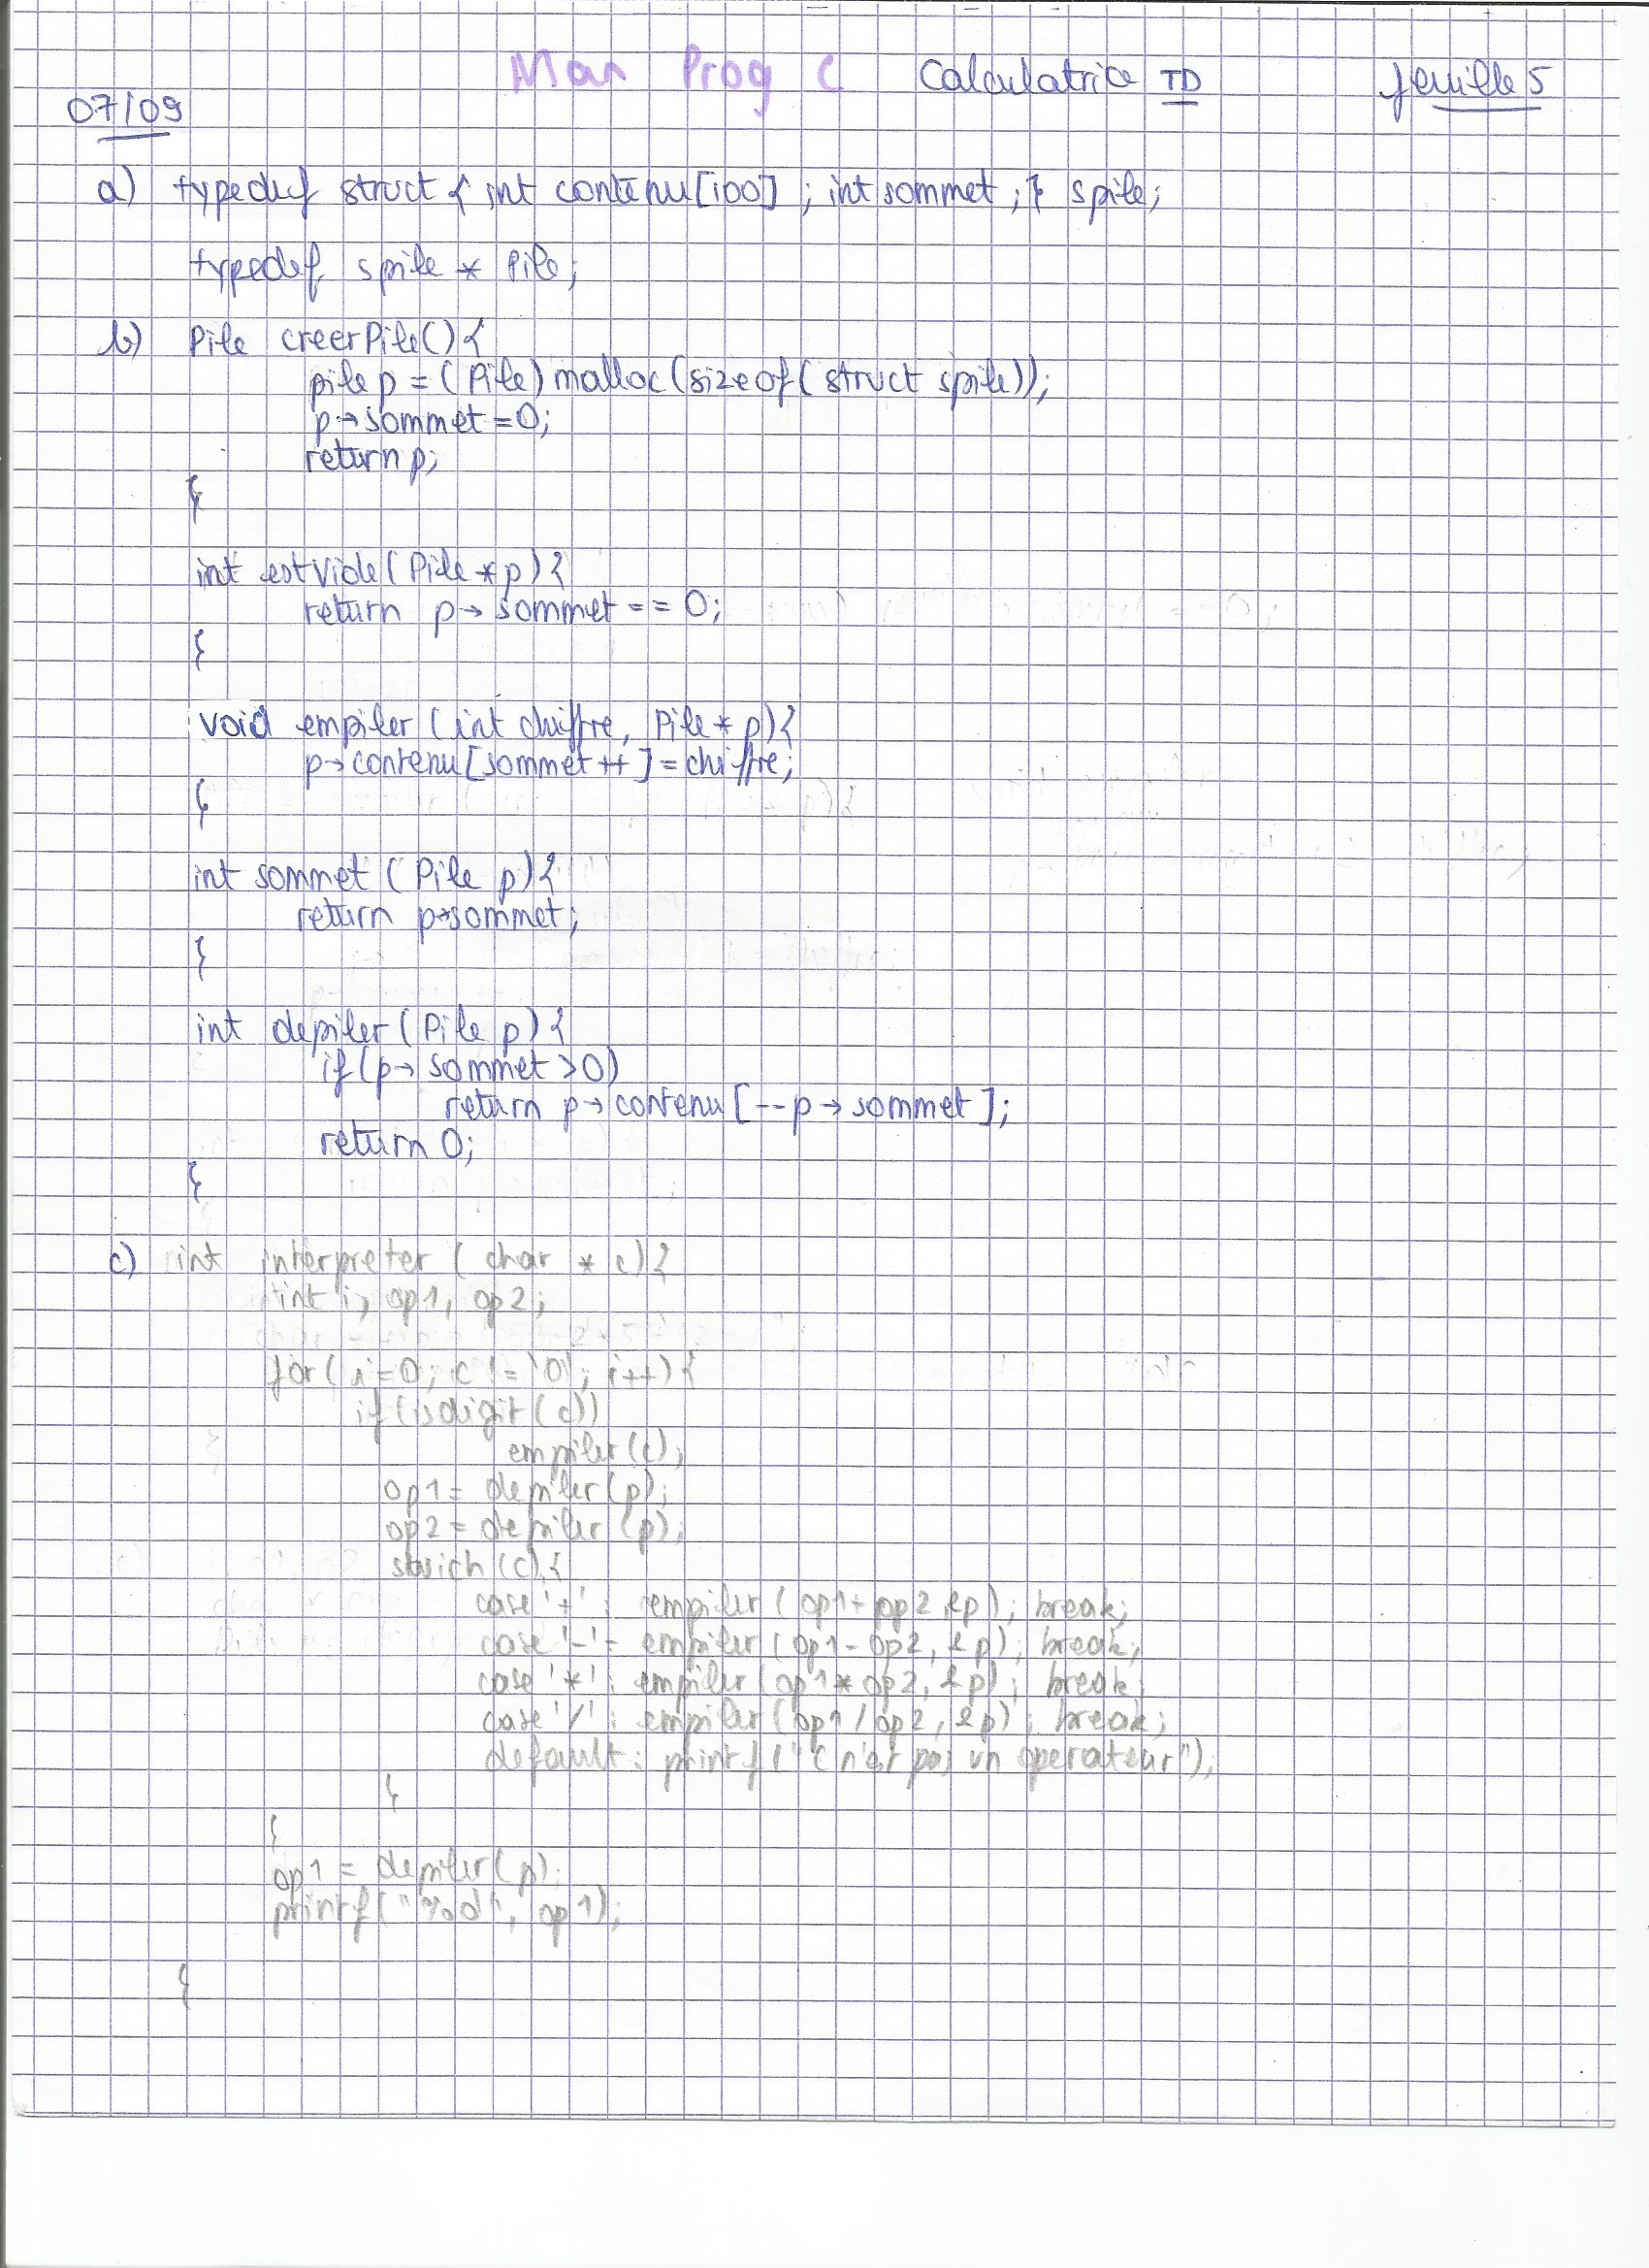 Man Prog C Calculatrice TD feuille 5
07/09
a) typedef struct { int contenu[100] ; int sommet ; } spile;
typedef spile * Pile;
b) Pile creerPile(){
pile p = (Pile) malloc(sizeof( struct spile));
p→sommet = 0;
return p;
}
int estVide(Pile *p){
return p→ sommet == 0;
}
void empiler (int chiffre, Pile * p){
p→contenu[sommet++] = chiffre;
}
int sommet (Pile p){
return p→sommet;
}
int depiler (Pile p){
if(p→ sommet >0)
return p→contenu[--p→sommet];
return 0;
}
c) int interpreter ( char * c){
int i, op1, op2;
for( i=0; c != '0'; i++){
if (isdigit(c))
empiler(c);
op1= depiler(p);
op2= depiler (p);
swich (c){
case '+' : empiler( op1+ op2, &p); break;
case '-' - empiler (op1- op2, &p); break;
case '*' : empiler(op1* op2, &p); break;
case '/' : empiler(op1 / op2, &p); break;
default : printf("c n'est pas un operateur");
}
}
op1 = depiler(p);
printf("%d", op1);
}